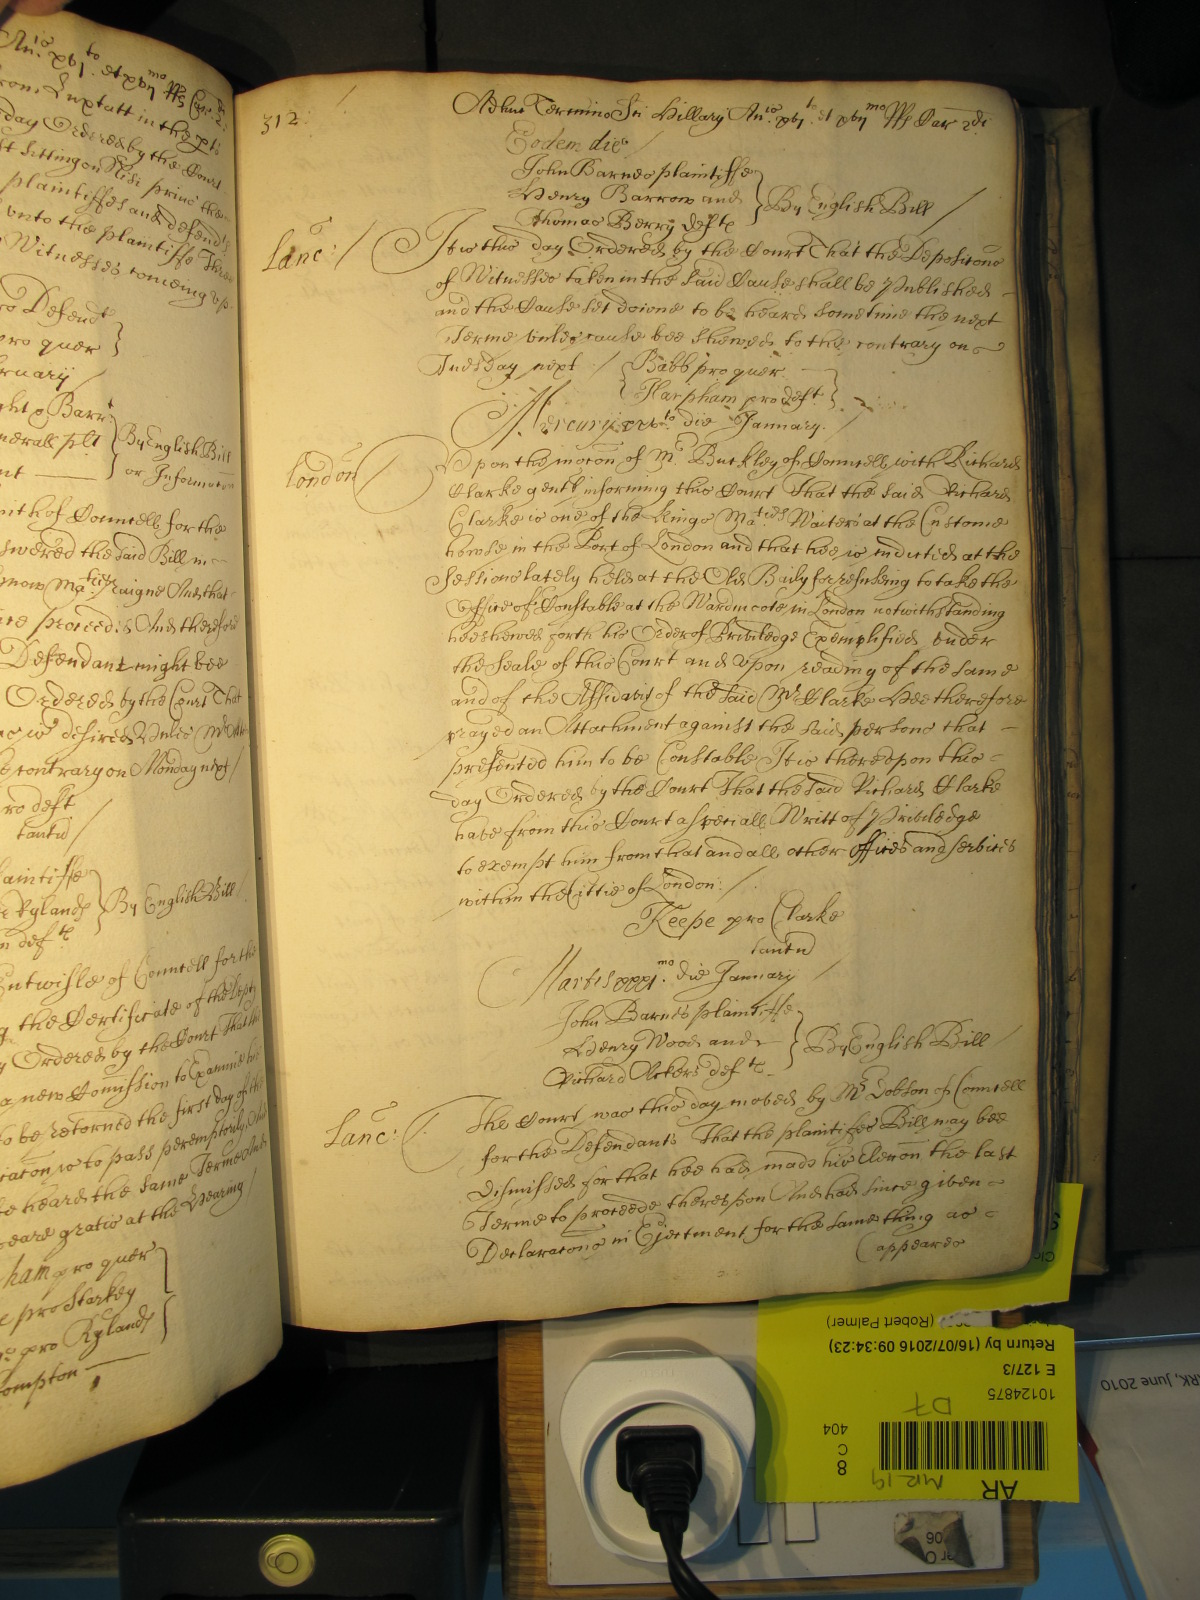 An:io xvj.to et xvij.mo RRs Car: 2:
day Ordered by the Court
st sitting on Nisi prius the
plaintiffes and defend.ts
vnto the plaintiffe Three
Witnesses comeing vp
ro Defend.t
pro quer
ruary /
ght & Barr.t
nerall pl.t } By English Bill
nt ——— or Informacon
of Councell for the
swered the said Bill in
now Ma:ties raigne And that
are proceedis And therefore
Defendant might bee
Ordered by the Court That
is desired Vnles
contrary on Monday next /
ro deft
tantu /
aintiffe
Rylands } By English Bill /
def.te
Entwisle of Councell for the
g the Certificate of the
y Ordered by the Court That the
a new Comission to Examine
to be returned the first day of the
is to pass peremptorily
be heard the same Terme And
peare gratis at the Hearing /
ham pro quer
pro Starkey
pro Rylands
ompton
312:
Adhuc Termino Sci Hillary An:io xvj.to et xvij.mo RRs Car 2di
Eodem die /
John Barnes plaintiffe
Henry Barrow and } By English Bill /
Thomas Berry def.te
Lanc: / It is this day Ordered by the Court That the Deposicons
of Witnesses taken in the said Cause shall be Published
and the Cause set downe to be heard sometime the next
Terme vnles cause bee shewed to the contrary on
Tuesday next / { Babb pro quer
Harpham pro def.t }
Mercury xxv.to die January.
London Vpon the mocon of M.r Buckley of Councell with Richard
Clarke gent informing this Court That the said Richard
Clarke is one of the Kings Ma:ties Waiters at the Custome
howse in the Port of London and that hee is indicted at the
Sessions lately held at the Old Baily for refusing to take the
Office of Constable at the Wardmoote in London notwithstanding
hee shewed forth his Order of Priviledge Exemplified vnder
the Seale of this Court and Vpon reading of the same
and of the Affidavit of the said M.r Clarke Hee therefore
prayed an Attachment against the said persons that
presented him to be Constable It is therevpon this
day Ordered by the Court That the said Richard Clarke
have from this Court a speciall Writt of Priviledge
to exempt him from that and all other offices and services
within the Cittie of London: /
Keepe pro Clarke
tantu
Martis xxxj.mo die January /
John Barnes plaintiffe
Henry Wood and } By English Bill /
Richard Ackers def.te
Lanc: The Court was this day moved by M.r Dobson of Councell
for the Defendants That the plaintifes Bill may bee
Dismissed for that hee had made his Eleccon the last
Terme to proceede therevpon And had since given
Declaracons in Ejectment for the same thing as
(appeares
(Robert Palmer)
Return by (16/07/2016 09:34:23)
E 127/3
10124875
D7
404
C
8
MR 19
AR
RK, June 2010